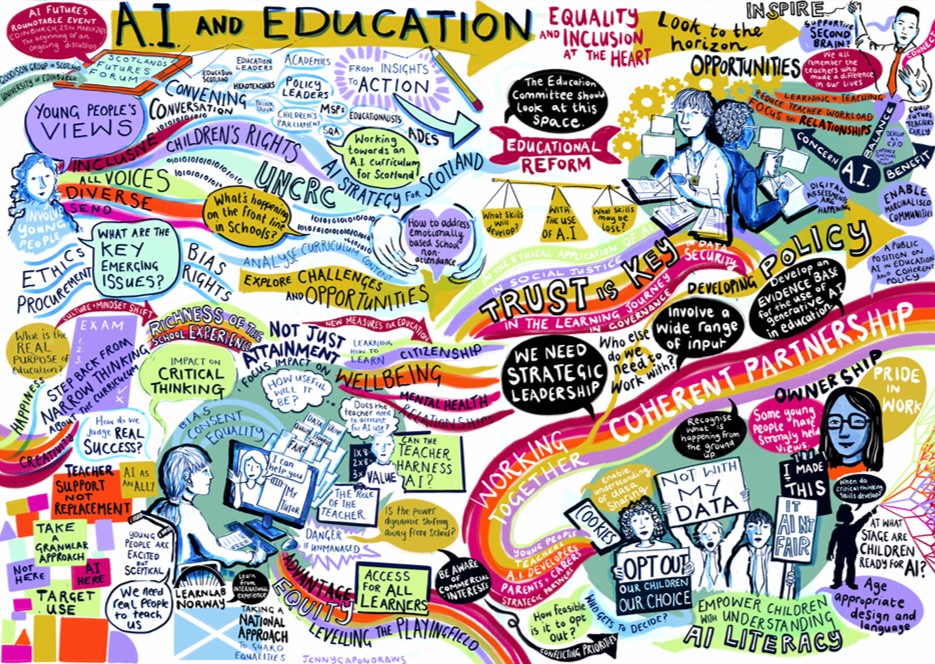 AI FUTURES
ROUNDTABLE EVENT
EDINBURGH, 25TH MARCH 2025
The beginning of an
ongoing discussion
A.I. AND EDUCATION
GOODISON GROUP IN SCOTLAND
UNIVERSITY OF EDINBURGH
SCOTLAND'S
FUTURES
FORUM
EDUCATION
SCOTLAND
EDUCATION
LEADERS
ACADEMICS
HEADTEACHERS
POLICY
LEADERS
THINK
TANK
CHILDREN'S
PARLIAMENT
MSPs
SQA
EDUCATIONALISTS
ADES
CONVENING
CONVERSATION
FROM INSIGHTS
TO ACTION
YOUNG PEOPLE'S
VIEWS
INCLUSIVE
ALL VOICES
DIVERSE
SEND
CHILDREN'S RIGHTS
UNCRC
AI STRATEGY FOR SCOTLAND
Working
towards an
A.I curriculum
for Scotland
INVOLVE
YOUNG
PEOPLE
What's happening
on the front line
in Schools?
How to address
emotionally
based School
non-
attendance
ANALYSE CURRICULUM CONTENT
EXPLORE CHALLENGES
AND OPPORTUNITIES
WHAT ARE THE
KEY
EMERGING
ISSUES?
ETHICS
PROCUREMENT
BIAS
RIGHTS
EQUALITY
AND INCLUSION
AT THE HEART
The Education
Committee should
look at this
space.
EDUCATIONAL
REFORM
What Skills
will we
develop?
WITH
THE USE
OF A.I
What Skills
may be
lost?
Look to the
horizon
OPPORTUNITIES
INSPIRE
SUPPORTIVE
SECOND
BRAIN?
We all
remember the
teachers who
made a difference
in our lives!
CONNECT
LEARNING + TEACHING
REDUCE TEACHER WORKLOAD
FOCUS ON RELATIONSHIPS
CONCERN
BALANCE
A.I.
BENEFIT
COULD
FUTURE
TEACHERS
EARLY
DIGITAL
ASSESSMENTS
ARE
HAPPENING
ENABLE
MARGINALISED
COMMUNITIES
A PUBLIC
POSITION ON
AI IN EDUCATION
AND COHERENT
POLICY
IN THE ETHICAL APPLICATION OF AI
IN SOCIAL JUSTICE
TRUST IS KEY
IN DATA
SECURITY
IN THE LEARNING JOURNEY
IN GOVERNANCE
DEVELOPING POLICY
Develop an
EVIDENCE BASE
for the use of
generative AI
in education
Involve a
wide range
of input
Who else
do we
need to
work with?
WE NEED
STRATEGIC
LEADERSHIP
COHERENT PARTNERSHIP
WORKING
TOGETHER
CULTURE + MINDSET SHIFT
What is the
REAL
PURPOSE of
Education?
EXAM
1.
2.
3.
STEP BACK FROM
NARROW THINKING
ABOUT THE CURRICULUM
HAPPINESS
CREATIVITY
RICHNESS OF THE
SCHOOL EXPERIENCE
IMPACT ON
CRITICAL
THINKING
How do we
judge REAL
SUCCESS?
NOT JUST
ATTAINMENT
NEW MEASURES FOR EDUCATION
LEARNING
HOW TO
LEARN
CITIZENSHIP
FOCUS IMPACT ON
WELLBEING
MENTAL HEALTH
RELATIONSHIPS
HOW USEFUL
WILL IT
BE?
BIAS
CONSENT
EQUALITY
I can
help you
HELP!
My
Tutor
Does the
teacher need
to account
for AI use?
VALUE
CAN THE
TEACHER
HARNESS
AI?
THE ROLE
OF THE
TEACHER
DANGER
IF UNMANAGED
Is the power
dynamic shifting
away from School?
TEACHER
SUPPORT
NOT
REPLACEMENT
AI AS
AN ALLY!
TAKE
A
GRANULAR
APPROACH
NOT
HERE
AI
HERE
TARGET
USE
YOUNG
PEOPLE ARE
EXCITED
BUT
SCEPTICAL
We need
real people
to teach
us
LEARNLAB
NORWAY
Learn
from
INTERNATIONAL
EXPERIENCE
TAKING A
NATIONAL
APPROACH
TO GUARD
EQUALITIES
ADVANTAGE
EQUITY
ACCESS
FOR ALL
LEARNERS
LEVELLING THE PLAYINGFIELD
BE AWARE
OF
COMMERCIAL
INTERESTS
JENNYCAPONDRAWS
YOUNG PEOPLE
A.I DEVELOPERS
PARENTS + CARERS
STRATEGIC PARTNERS
How feasible
is it to Opt
Out?
CONFLICTING PRIORITIES
WHO GETS TO DECIDE?
Enable
understanding
of data
sharing
COOKIES
OPT OUT
OUR CHILDREN
OUR CHOICE
NOT WITH
MY
DATA
IT
AIN'T
FAIR
Recognise
what is
happening
from the
ground
up
Some young
people have
strongly held
views.
OWNERSHIP
PRIDE
IN
WORK
I
MADE
THIS
When do
critical thinking
Skills develop?
AT WHAT
STAGE ARE
CHILDREN
READY FOR AI?
Age
appropriate
design and
language
EMPOWER CHILDREN
WITH UNDERSTANDING
AI LITERACY